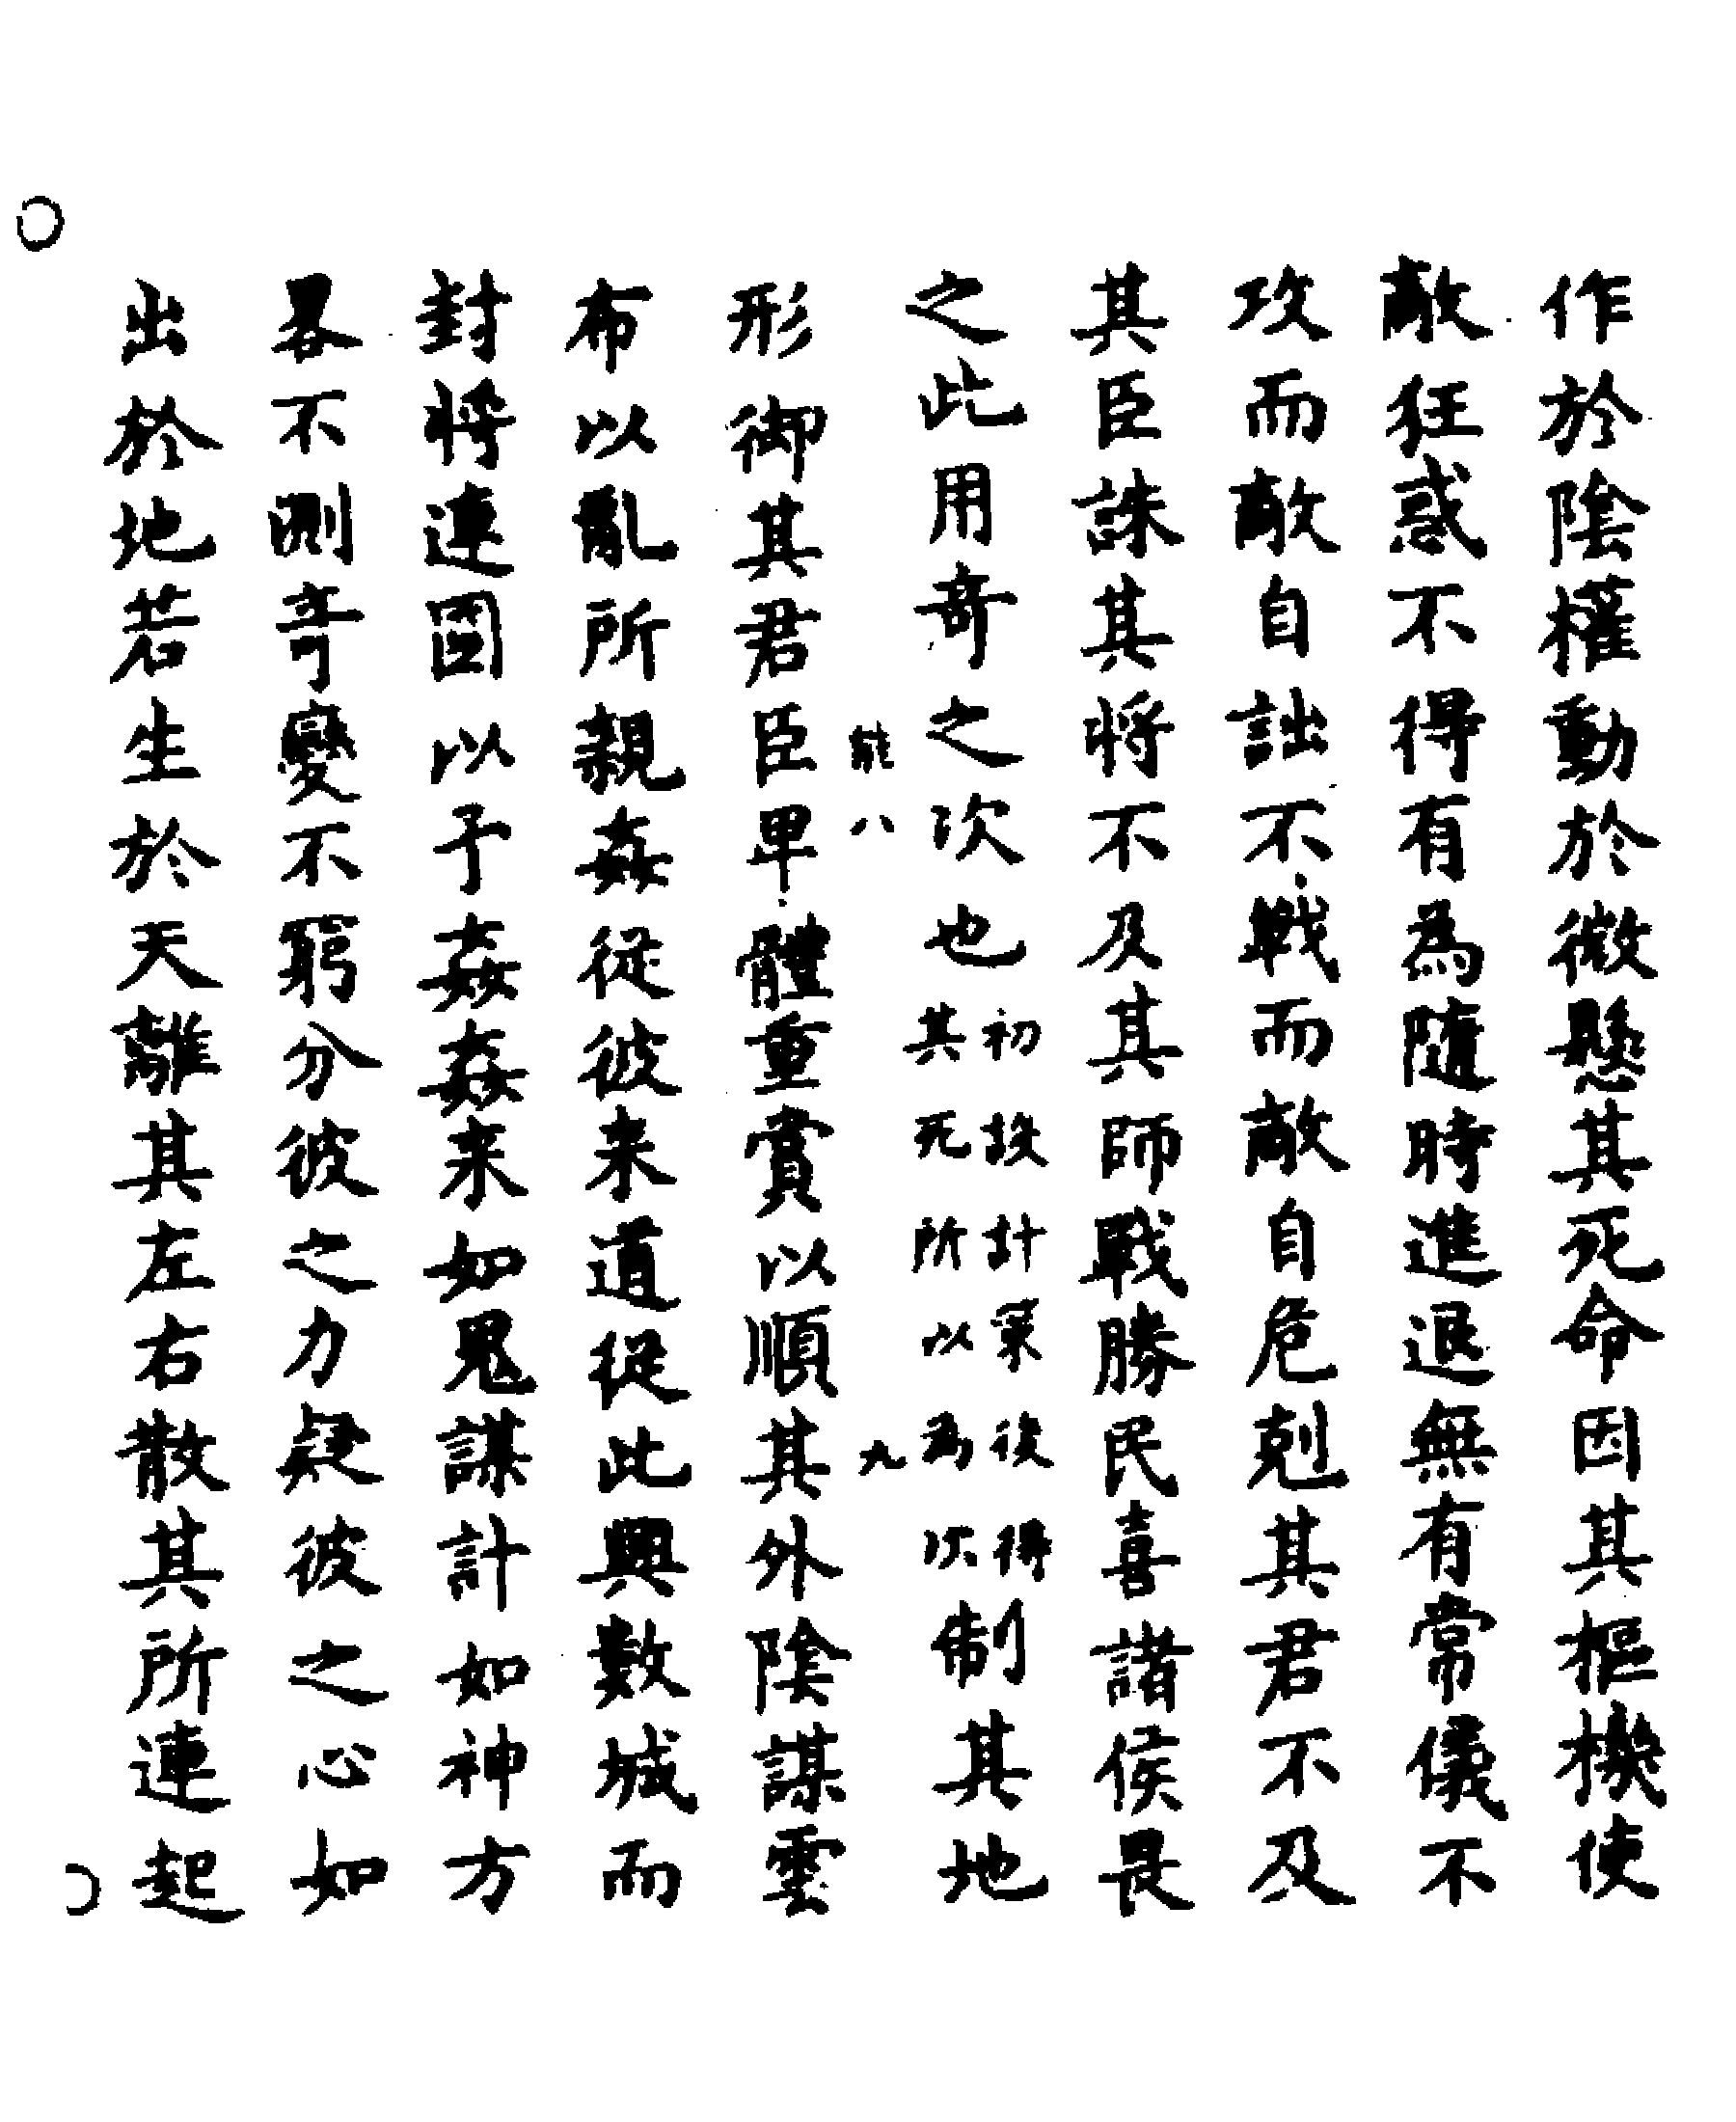 作於陰權動於微懸其死命因其樞機使
敵狂惑不得有為隨時進退無有常儀不
攻而敵自詘不戰而敵自危剋其君不及
其臣誅其將不及其師戰勝民喜諸侯畏
之此用奇之次也初設計策後得其死所以為次制其地
能八九
形御其君臣卑體重賞以順其外陰謀雲
布以亂所親姦從彼来道從此興數城而
封將連國以予姦姦来如鬼謀計如神方
畧不測竒變不窮分彼之力疑彼之心如
出於地若生於天離其左右散其所連起